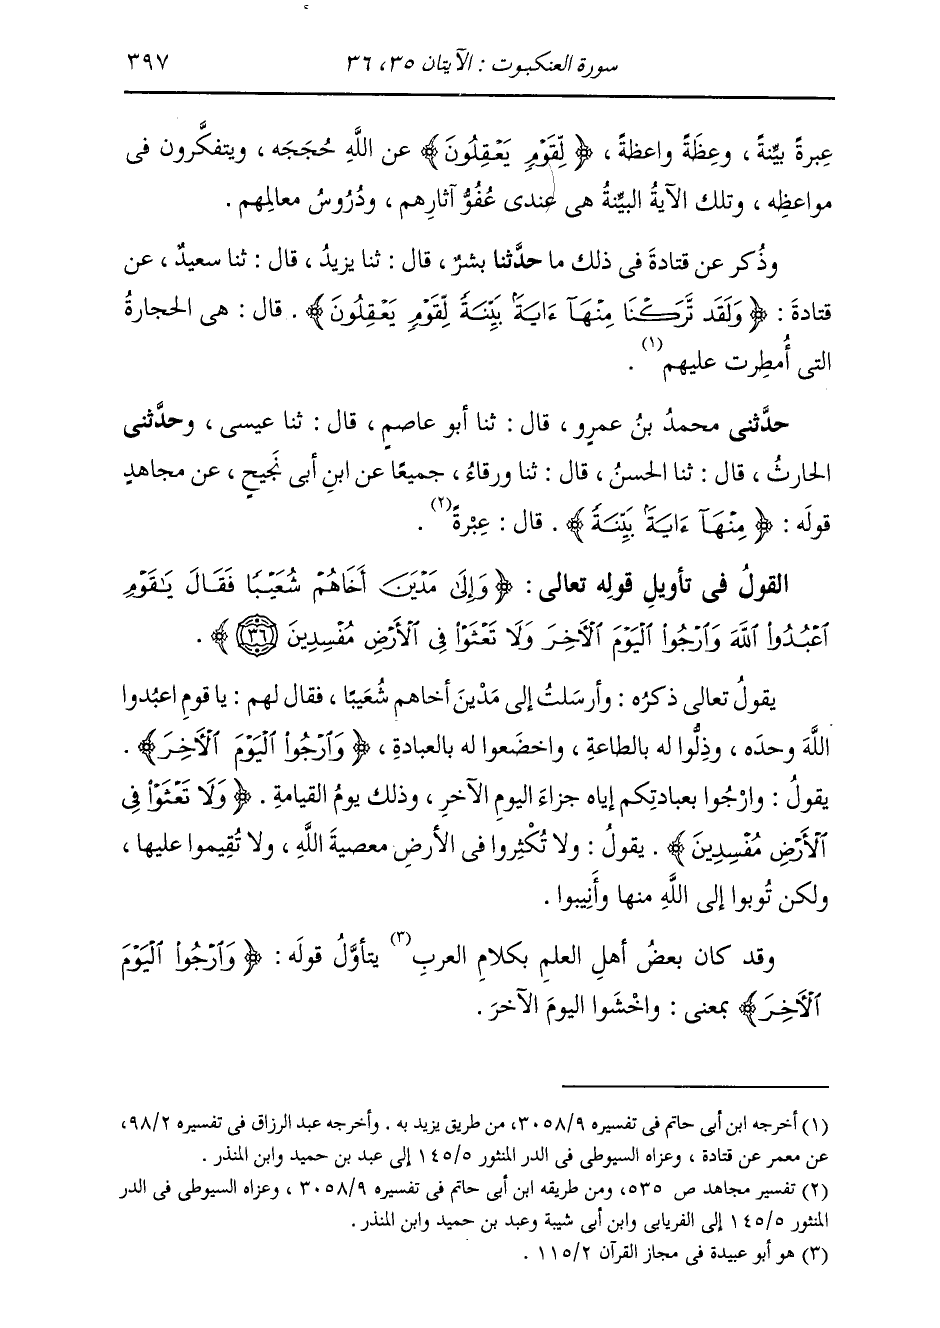 سورة العنكبوت : الآيتان ٣٥، ٣٦ ٣٩٧
عِبرةً بيِّنةً ، وعِظَةً واعظةً ، ﴿ لِّقَوْمٍ يَعْقِلُونَ ﴾ عن اللَّهِ حُجَجَه ، ويتفكَّرون فى
مواعظِه ، وتلك الآيةُ البيِّنةُ هى عندى عُفُوُّ آثارِهم ، ودُرُوسُ معالِمِهم .
وذُكر عن قتادةَ فى ذلك ما حدَّثنا بشرٌ ، قال : ثنا يزيدُ ، قال : ثنا سعيدٌ ، عن
قتادةَ : ﴿ وَلَقَد تَّرَكْنَا مِنْهَآ ءَايَةً بَيِّنَةً لِّقَوْمٍ يَعْقِلُونَ ﴾ . قال : هى الحجارةُ
التى أُمطِرت عليهم(١) .
حدَّثنى محمدُ بنُ عمرٍو ، قال : ثنا أبو عاصمٍ ، قال : ثنا عيسى ، وحدَّثنى
الحارثُ ، قال : ثنا الحسنُ ، قال : ثنا ورقاءُ ، جميعًا عن ابنِ أبى نَجيحٍ ، عن مجاهدٍ
قولَه : ﴿ مِنْهَآ ءَايَةً بَيِّنَةً ﴾ . قال : عِبْرةً(٢) .
القولُ فى تأويلِ قولِه تعالى : ﴿ وَإِلَىٰ مَدْيَنَ أَخَاهُمْ شُعَيْبًا فَقَالَ يَٰقَوْمِ
ٱعْبُدُوا۟ ٱللَّهَ وَٱرْجُوا۟ ٱلْيَوْمَ ٱلْأَخِرَ وَلَا تَعْثَوْا۟ فِى ٱلْأَرْضِ مُفْسِدِينَ ٣٦ ﴾ .
يقولُ تعالى ذكرُه : وأرسَلتُ إلى مَدْينَ أخاهم شُعَيبًا ، فقال لهم : يا قومِ اعبُدوا
اللَّهَ وحدَه ، وذِلُّوا له بالطاعةِ ، واخضَعوا له بالعبادةِ ، ﴿ وَٱرْجُوا۟ ٱلْيَوْمَ ٱلْأَخِرَ ﴾ .
يقولُ : وارْجُوا بعبادتِكم إياه جزاءَ اليومِ الآخرِ ، وذلك يومُ القيامةِ . ﴿ وَلَا تَعْثَوْا۟ فِى
ٱلْأَرْضِ مُفْسِدِينَ ﴾ . يقولُ : ولا تُكْثِروا فى الأرضِ معصيةَ اللَّهِ ، ولا تُقِيموا عليها ،
ولكن تُوبوا إلى اللَّهِ منها وأَنِيبوا .
وقد كان بعضُ أهلِ العلمِ بكلامِ العربِ(٣) يتأوَّلُ قولَه : ﴿ وَٱرْجُوا۟ ٱلْيَوْمَ
ٱلْأَخِرَ ﴾ بمعنى : واخْشَوا اليومَ الآخرَ .
(١) أخرجه ابن أبى حاتم فى تفسيره ٣٠٥٨/٩، من طريق يزيد به . وأخرجه عبد الرزاق فى تفسيره ٩٨/٢،
عن معمر عن قتادة ، وعزاه السيوطى فى الدر المنثور ١٤٥/٥ إلى عبد بن حميد وابن المنذر .
(٢) تفسير مجاهد ص ٥٣٥، ومن طريقه ابن أبى حاتم فى تفسيره ٣٠٥٨/٩ ، وعزاه السيوطى فى الدر
المنثور ١٤٥/٥ إلى الفريابى وابن أبى شيبة وعبد بن حميد وابن المنذر .
(٣) هو أبو عبيدة فى مجاز القرآن ١١٥/٢ .